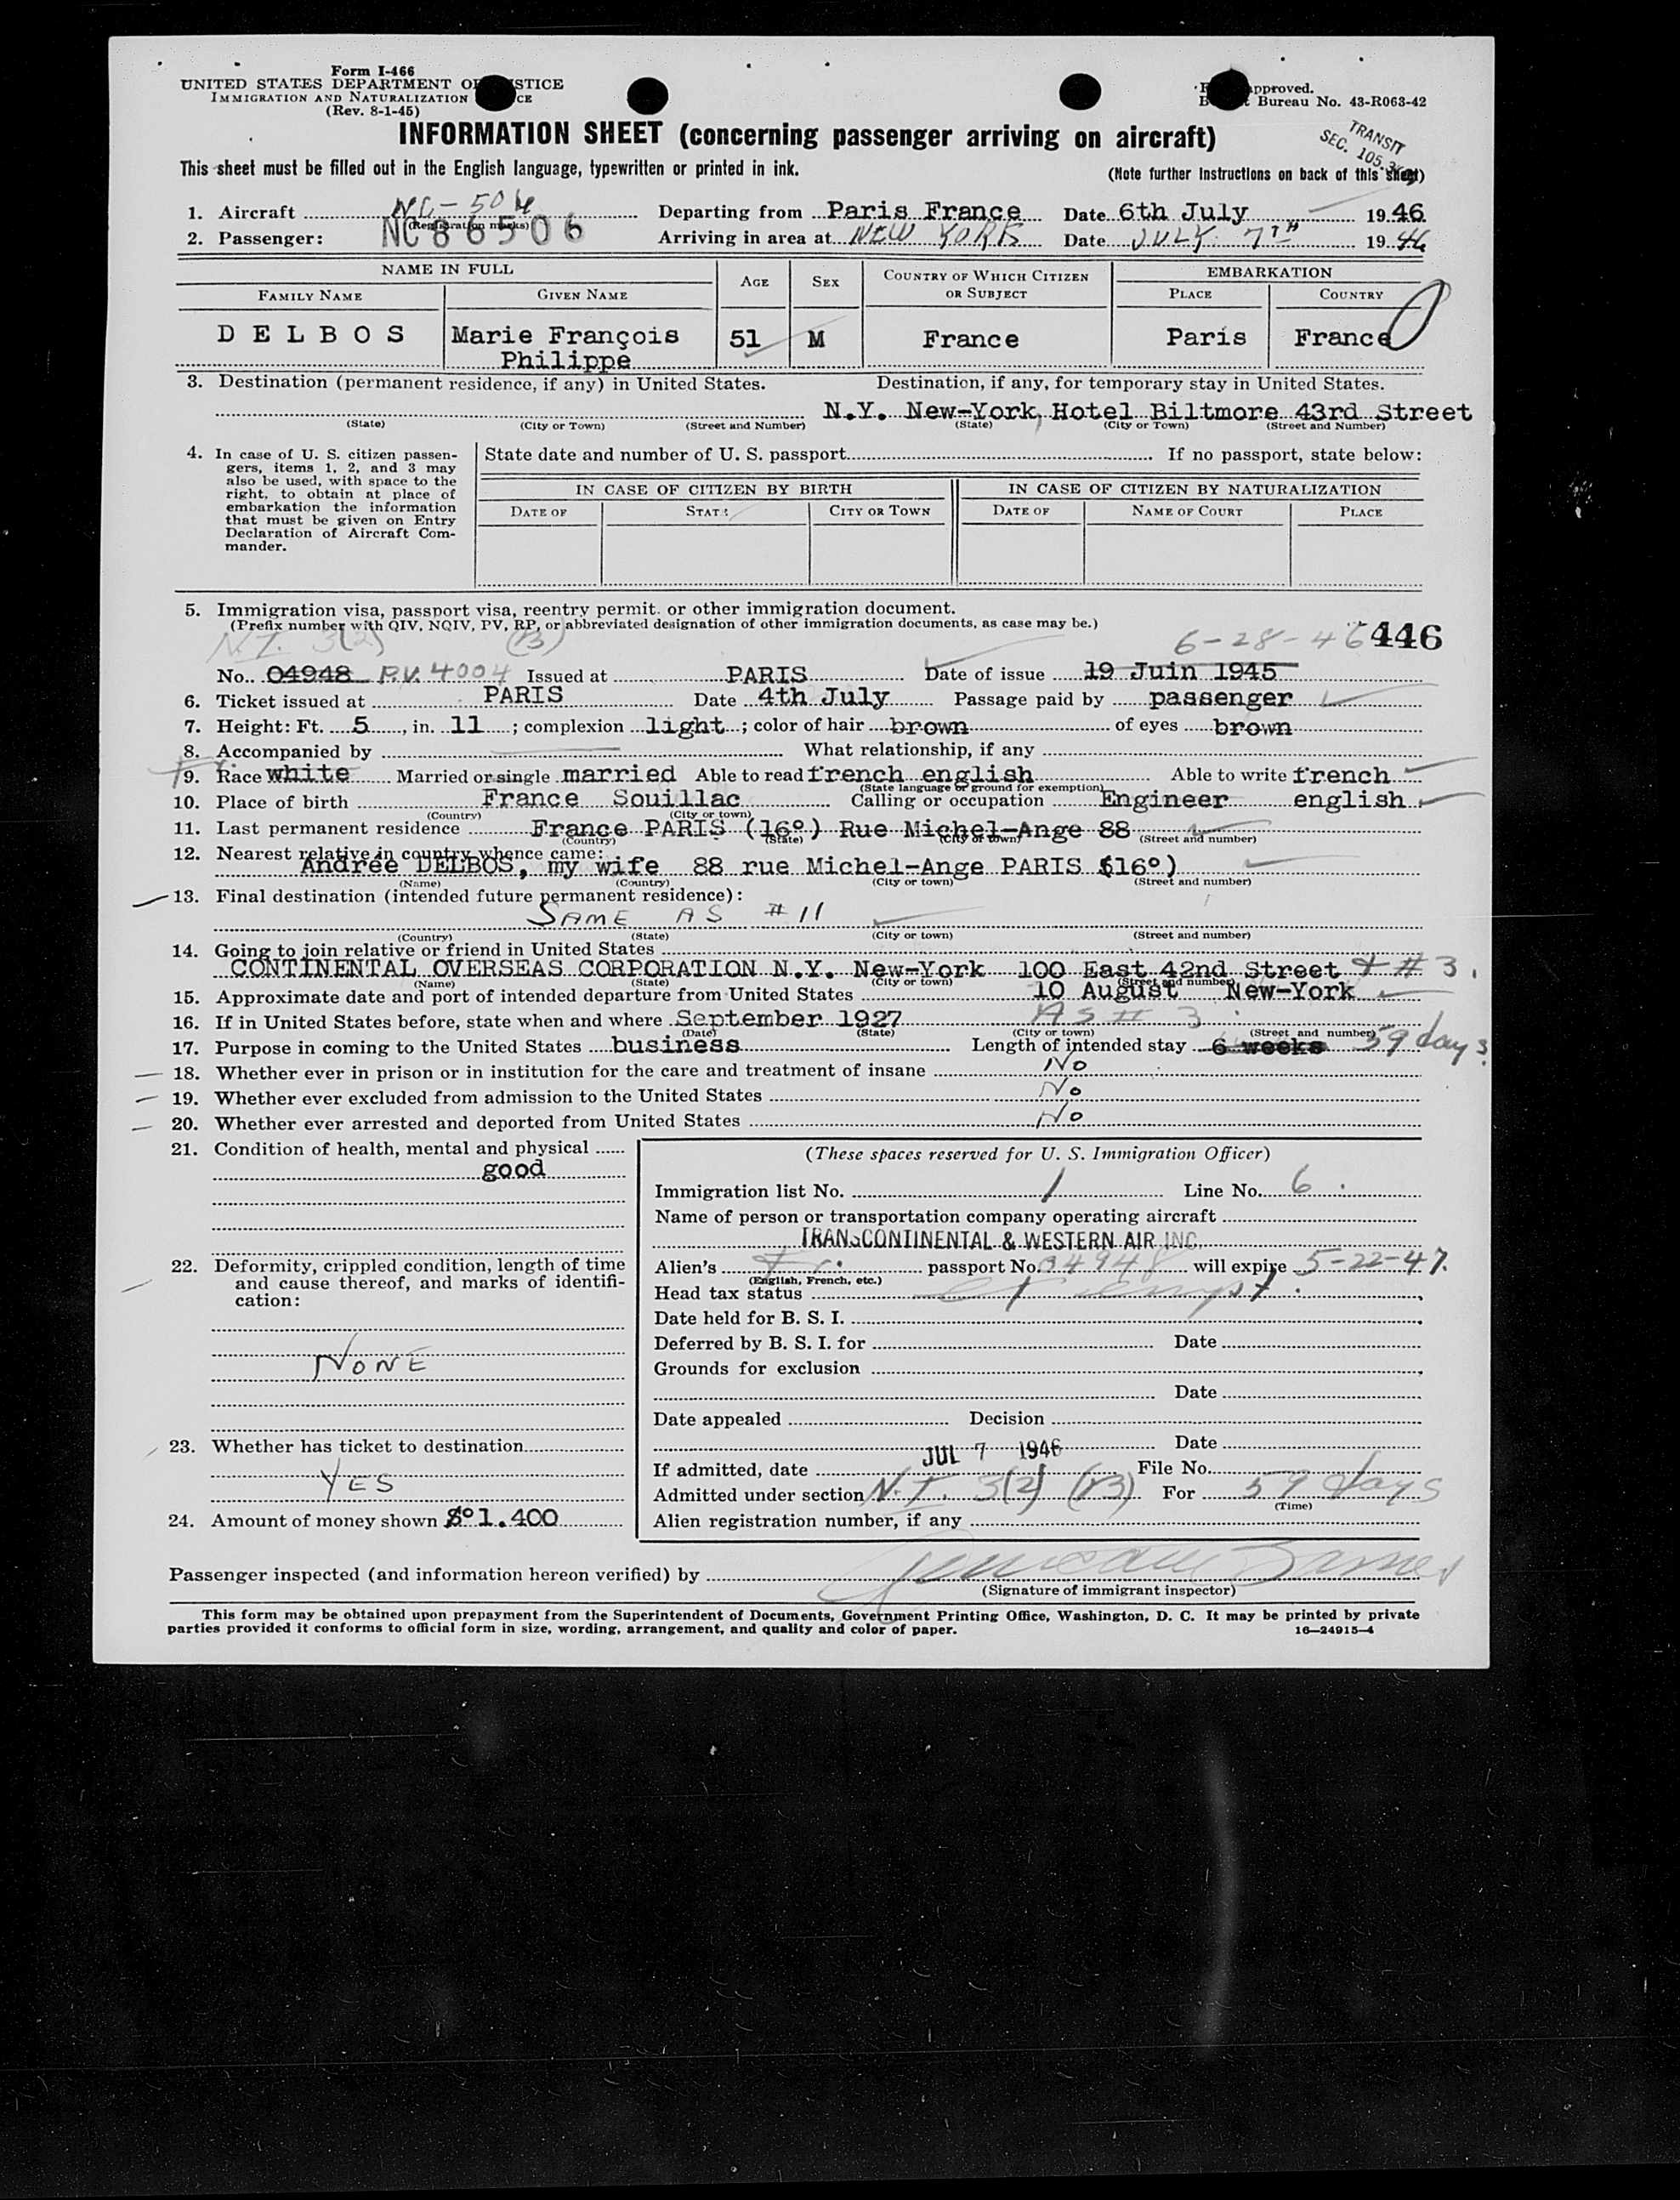 Form I-466
UNITED STATES DEPARTMENT OF JUSTICE
IMMIGRATION AND NATURALIZATION SERVICE
(Rev. 8-1-45)
Approved.
Bureau No. 43-R063-42
INFORMATION SHEET (concerning passenger arriving on aircraft)
TRANSIT
SEC. 105.3
This sheet must be filled out in the English language, typewritten or printed in ink.
(Note further instructions on back of this sheet)
1. Aircraft NC-506 Departing from Paris France Date 6th July 1946
(Registration marks)
2. Passenger: NC86506 Arriving in area at NEW YORK Date JULY 7TH 1946
NAME IN FULL AGE SEX COUNTRY OF WHICH CITIZEN OR SUBJECT EMBARKATION
FAMILY NAME GIVEN NAME PLACE COUNTRY
DELBOS Marie François Philippe 51 M France Paris France
3. Destination (permanent residence, if any) in United States. Destination, if any, for temporary stay in United States.
N.Y. New-York, Hotel Biltmore 43rd Street
(State) (City or Town) (Street and Number) (State) (City or Town) (Street and Number)
4. In case of U. S. citizen passengers, items 1, 2, and 3 may also be used, with space to the right, to obtain at place of embarkation the information that must be given on Entry Declaration of Aircraft Commander.
State date and number of U. S. passport If no passport, state below:
IN CASE OF CITIZEN BY BIRTH IN CASE OF CITIZEN BY NATURALIZATION
DATE OF STATE CITY OR TOWN DATE OF NAME OF COURT PLACE
5. Immigration visa, passport visa, reentry permit. or other immigration document.
(Prefix number with QIV, NQIV, PV, RP, or abbreviated designation of other immigration documents, as case may be.)
N.I. 3(2) (B) 6-28-46 446
No. 04948 P.V. 4004 Issued at PARIS Date of issue 19 Juin 1945
6. Ticket issued at PARIS Date 4th July Passage paid by passenger
7. Height: Ft. 5, in. 11; complexion light; color of hair brown of eyes brown
8. Accompanied by What relationship, if any
9. Race white Married or single married Able to read french english Able to write french
(State language or ground for exemption)
10. Place of birth France Souillac Calling or occupation Engineer english
(Country) (City or town)
11. Last permanent residence France PARIS (16°) Rue Michel-Ange 88
(Country) (State) (City or town) (Street and number)
12. Nearest relative in country whence came:
Andrée DELBOS, my wife 88 rue Michel-Ange PARIS (16°)
(Name) (Country) (City or town) (Street and number)
13. Final destination (intended future permanent residence):
SAME AS # 11
(Country) (State) (City or town) (Street and number)
14. Going to join relative or friend in United States
CONTINENTAL OVERSEAS CORPORATION N.Y. New-York 100 East 42nd Street + # 3.
(Name) (State) (City or town) (Street and number)
15. Approximate date and port of intended departure from United States 10 August New-York
16. If in United States before, state when and where September 1927 AS # 3
(Date) (State) (City or town) (Street and number)
17. Purpose in coming to the United States business Length of intended stay 6 weeks 59 days
18. Whether ever in prison or in institution for the care and treatment of insane No
19. Whether ever excluded from admission to the United States No
20. Whether ever arrested and deported from United States No
21. Condition of health, mental and physical
good
(These spaces reserved for U. S. Immigration Officer)
Immigration list No. 1 Line No. 6
Name of person or transportation company operating aircraft
TRANSCONTINENTAL & WESTERN AIR INC.
22. Deformity, crippled condition, length of time and cause thereof, and marks of identification:
NONE
Alien's Fr. passport No. 04948 will expire 5-22-47.
(English, French, etc.)
Head tax status exempt.
Date held for B. S. I.
Deferred by B. S. I. for Date
Grounds for exclusion
Date
Date appealed Decision
Date
23. Whether has ticket to destination
YES
JUL 7 1946
If admitted, date File No.
Admitted under section N.I. 3(2) (B) For 59 days
(Time)
24. Amount of money shown $° 1.400
Alien registration number, if any
Passenger inspected (and information hereon verified) by
(Signature of immigrant inspector)
This form may be obtained upon prepayment from the Superintendent of Documents, Government Printing Office, Washington, D. C. It may be printed by private
parties provided it conforms to official form in size, wording, arrangement, and quality and color of paper. 16—24915-4